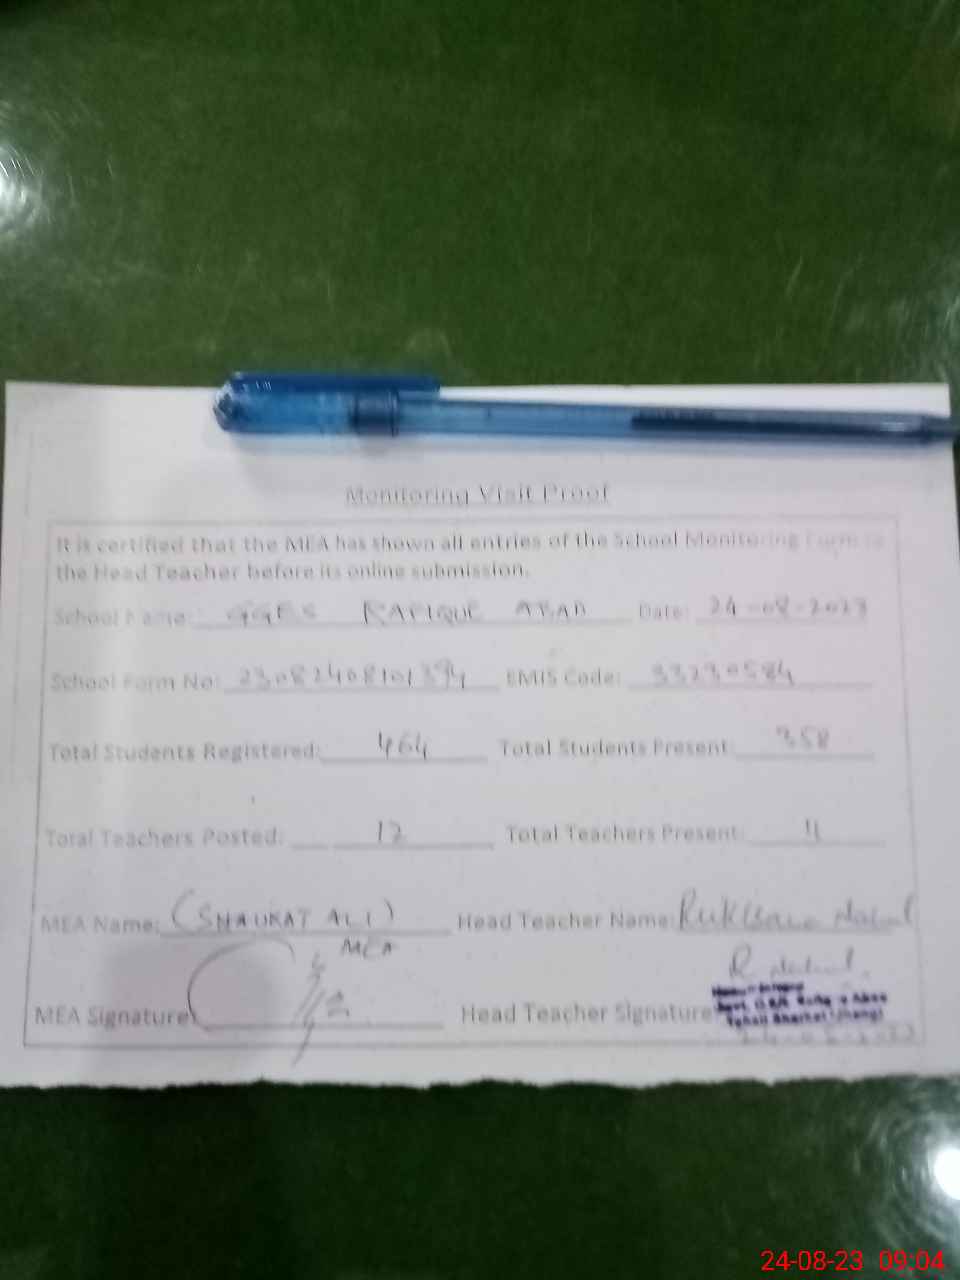 Monitoring Visit Proof
It is certified that the MEA has shown all entries of the School Monitoring Form to
the Head Teacher before its online submission.
School Name: GGES RAFIQUE ABAD Date: 24-08-2023
School Form No: 23082408101394 EMIS Code: 33230584
Total Students Registered: 464 Total Students Present: 358
Total Teachers Posted: 12 Total Teachers Present: 11
MEA Name: (SHAUKAT ALI) Head Teacher Name:
MEA
MEA Signature: Head Teacher Signature:
24-08-23 09:04